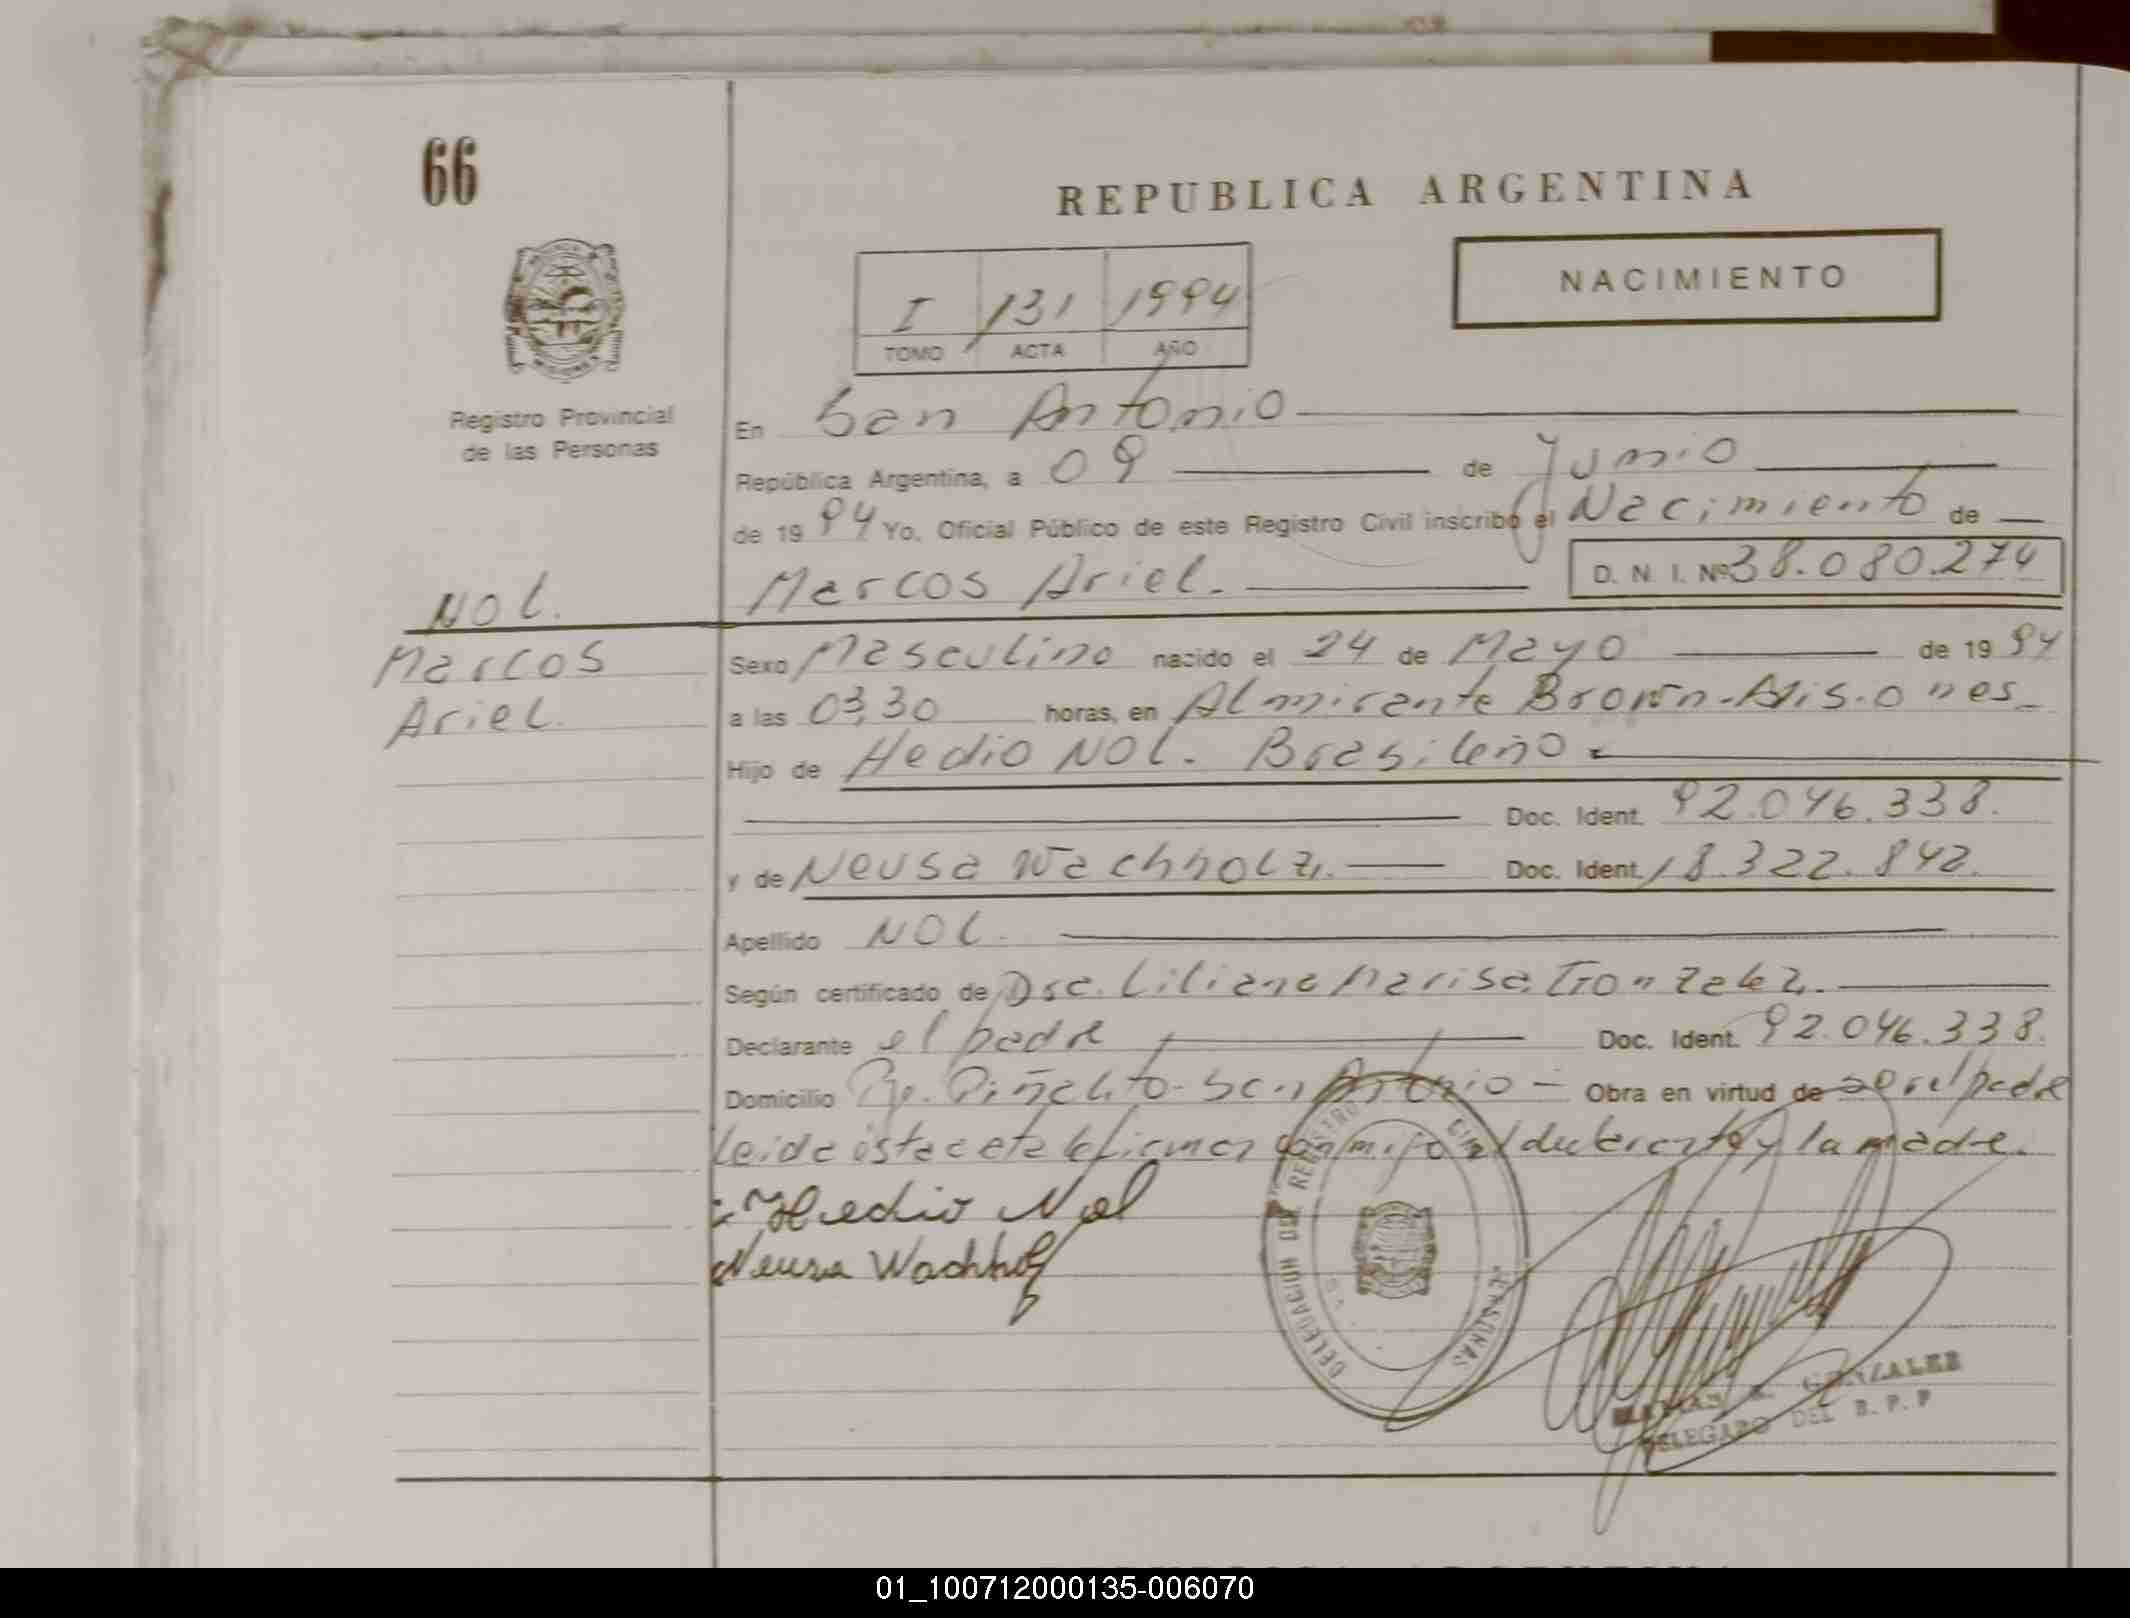 66
REPUBLICA ARGENTINA
NACIMIENTO
I 131 1994
TOMO ACTA AÑO
Registro Provincial
de las Personas
En San Antonio
República Argentina, a 09 de Junio
de 1994 Yo, Oficial Público de este Registro Civil inscribo el Nacimiento de
Marcos Ariel. D. N. I. Nº 38.080.274
NOL.
Marcos
Ariel.
Sexo Masculino nacido el 24 de Mayo de 1994
a las 03,30 horas, en Almirante Brown-Misiones
Hijo de Hedio NOL. Brasileño
Doc. Ident. 92.046.338.
y de Neusa Wachholz. Doc. Ident. 18.322.842.
Apellido NOL.
Según certificado de Dra. Liliana Marisa Gonzalez.
Declarante el padre Doc. Ident. 92.046.338.
Domicilio Piñalito-San Antonio - Obra en virtud de ser el padre
Leida ésta acta la firman conmigo el declarante y la madre.
Hedio Nol
Neusa Wachholz
DELEGACION DEL REGISTRO PERSONAS
GONZALEZ
DELEGADO DEL R. P. P
01_100712000135-006070